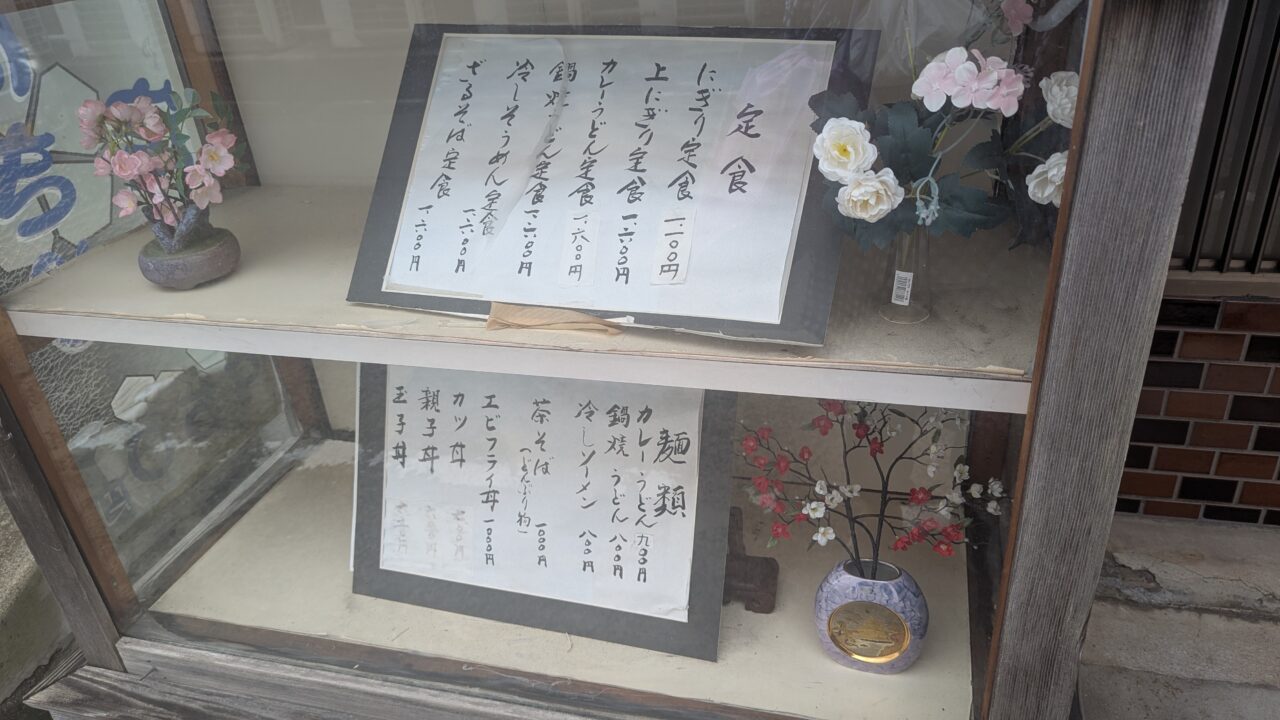 定食
にぎり定食 一、一〇〇円
上にぎり定食 一、六〇〇円
カレーうどん定食 一、六〇〇円
鍋焼うどん定食 一、六〇〇円
冷しそうめん定食 一、六〇〇円
ざるそば定食 一、六〇〇円
麺類
カレーうどん 九〇〇円
鍋焼うどん 八〇〇円
冷しソーメン 八〇〇円
茶そば 一〇〇〇円
(どんぶり物)
エビフライ丼 一〇〇〇円
カツ丼
親子丼
玉子丼